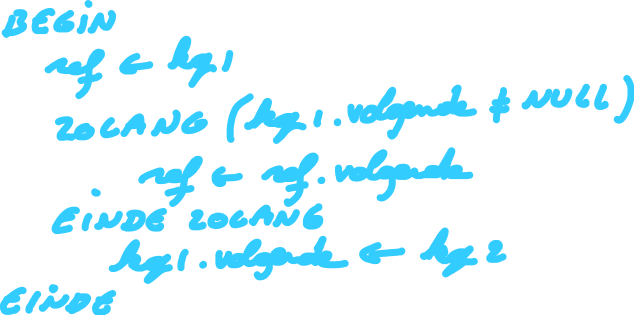 BEGIN
ref ← kg1
ZOLANG (kg1.volgende ≠ NULL)
ref ← ref.volgende
EINDE ZOLANG
kg1.volgende ← kg2
EINDE